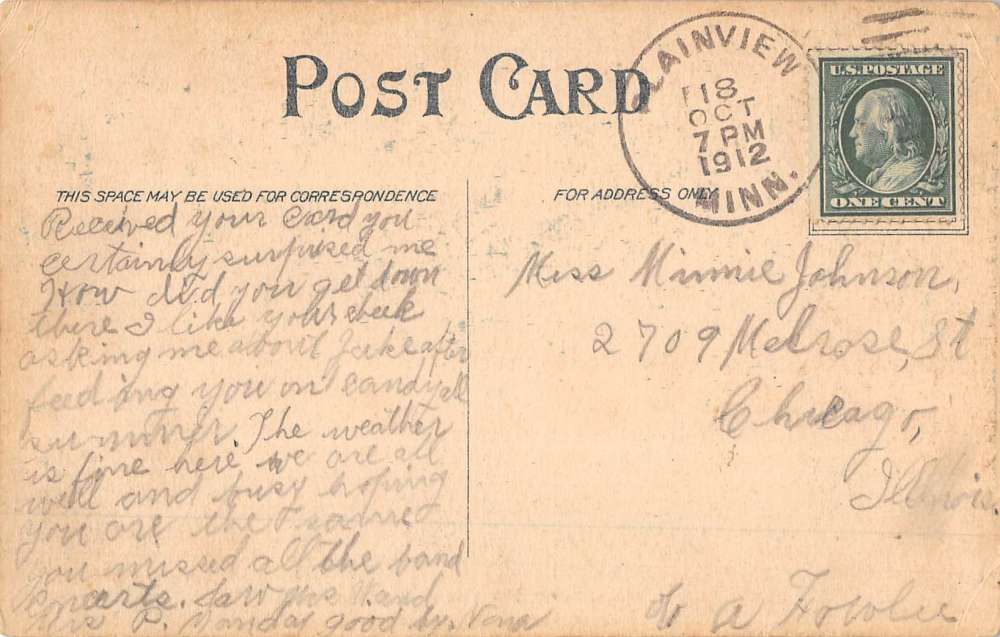 POST CARD
PLAINVIEW
18
OCT
7 PM
1912
MINN.
U.S. POSTAGE
ONE CENT
THIS SPACE MAY BE USED FOR CORRESPONDENCE
FOR ADDRESS ONLY
Received your Card you
certainly surprised me
How did you get down
there I like your cheek
asking me about Jake after
feeding you on candy all
summer. The weather
is fine here we are all
well and busy hoping
you are the same
you missed all the band
and
Mrs P. Monday good by.
Miss Minnie Johnson,
2709 Melrose, St
Chicago,
Illinois.